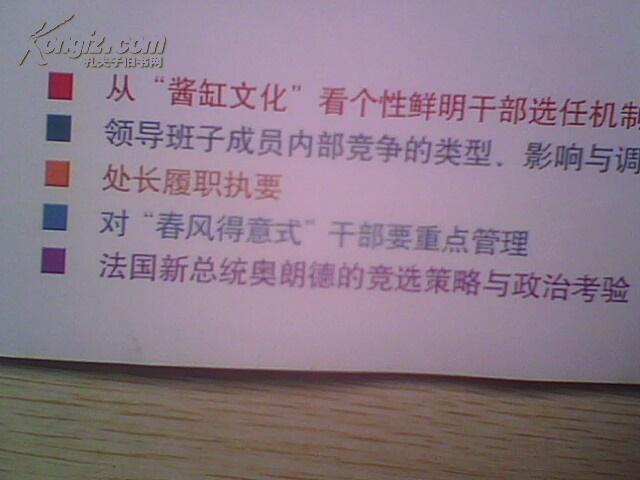 Kongfz.com
孔夫子旧书网
从“酱缸文化”看个性鲜明干部选任机制
领导班子成员内部竞争的类型、影响与调
处长履职执要
对“春风得意式”干部要重点管理
法国新总统奥朗德的竞选策略与政治考验